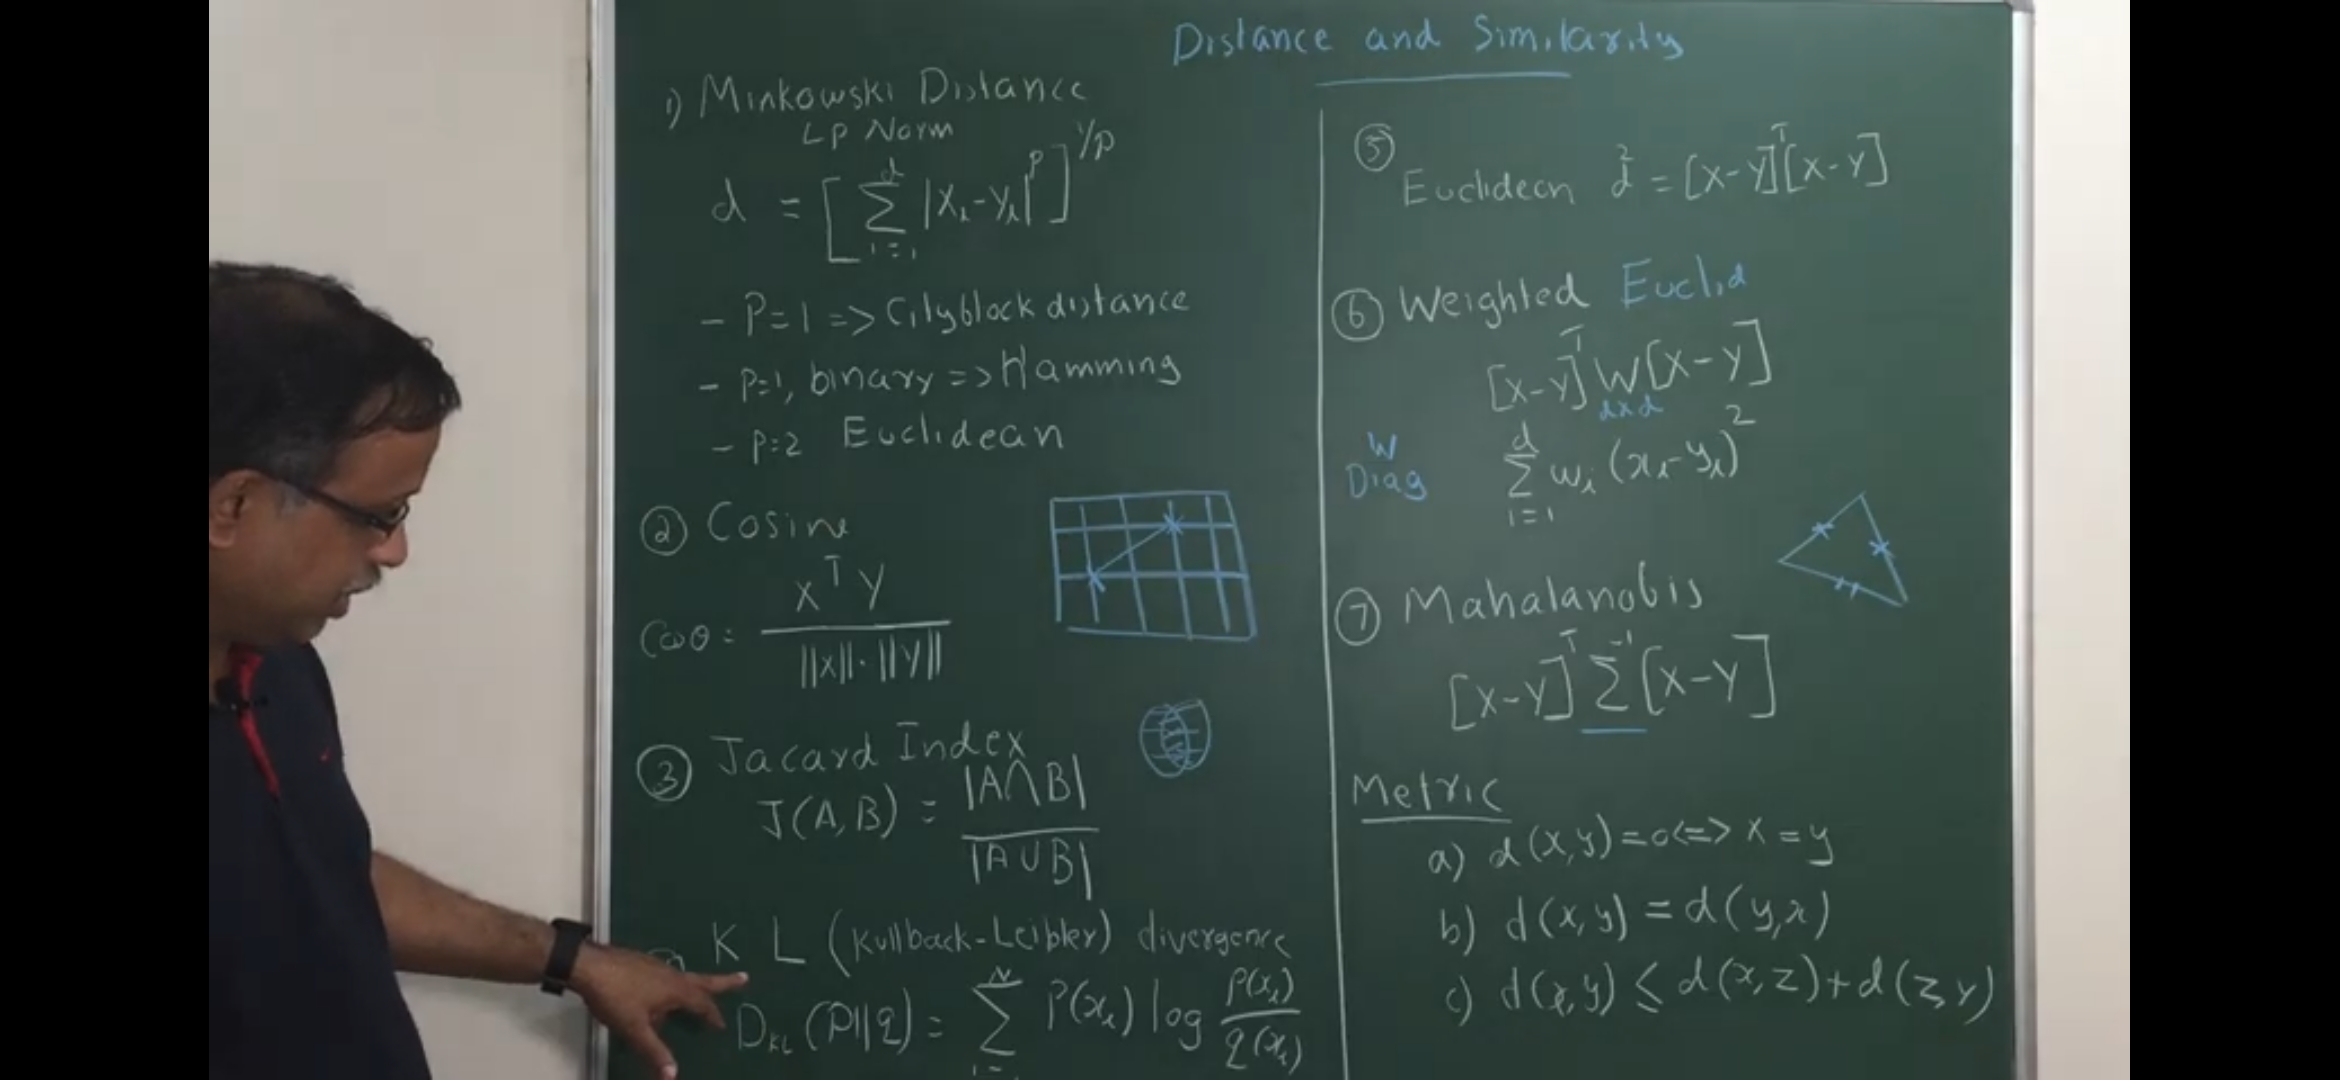 Distance and Similarity
1) Minkowski Distance
Lp Norm
d = [ d Σ i=1 |xᵢ-yᵢ|^p ]^1/p
- P=1 => Cityblock distance
- P=1, binary => Hamming
- P=2 Euclidean
② Cosine
Cosθ = x^T y / ||x||·||y||
③ Jacard Index
J(A,B) = |A∩B| / |A∪B|
K L (Kullback-Leibler) divergence
D_KL (P||q) = N Σ i= P(xᵢ) log P(xᵢ) / q(xᵢ)
⑤
Euclidean d² = [x-y]^T [x-y]
⑥ Weighted Euclid
[x-y]^T W [x-y]
dxd
W
Diag
d Σ i=1 wᵢ (xᵢ-yᵢ)²
⑦ Mahalanobis
[x-y]^T Σ^-1 [x-y]
Metric
a) d(x,y)=0<=> x = y
b) d(x,y) = d(y,x)
c) d(x,y) ≤ d(x,z)+d(z,y)